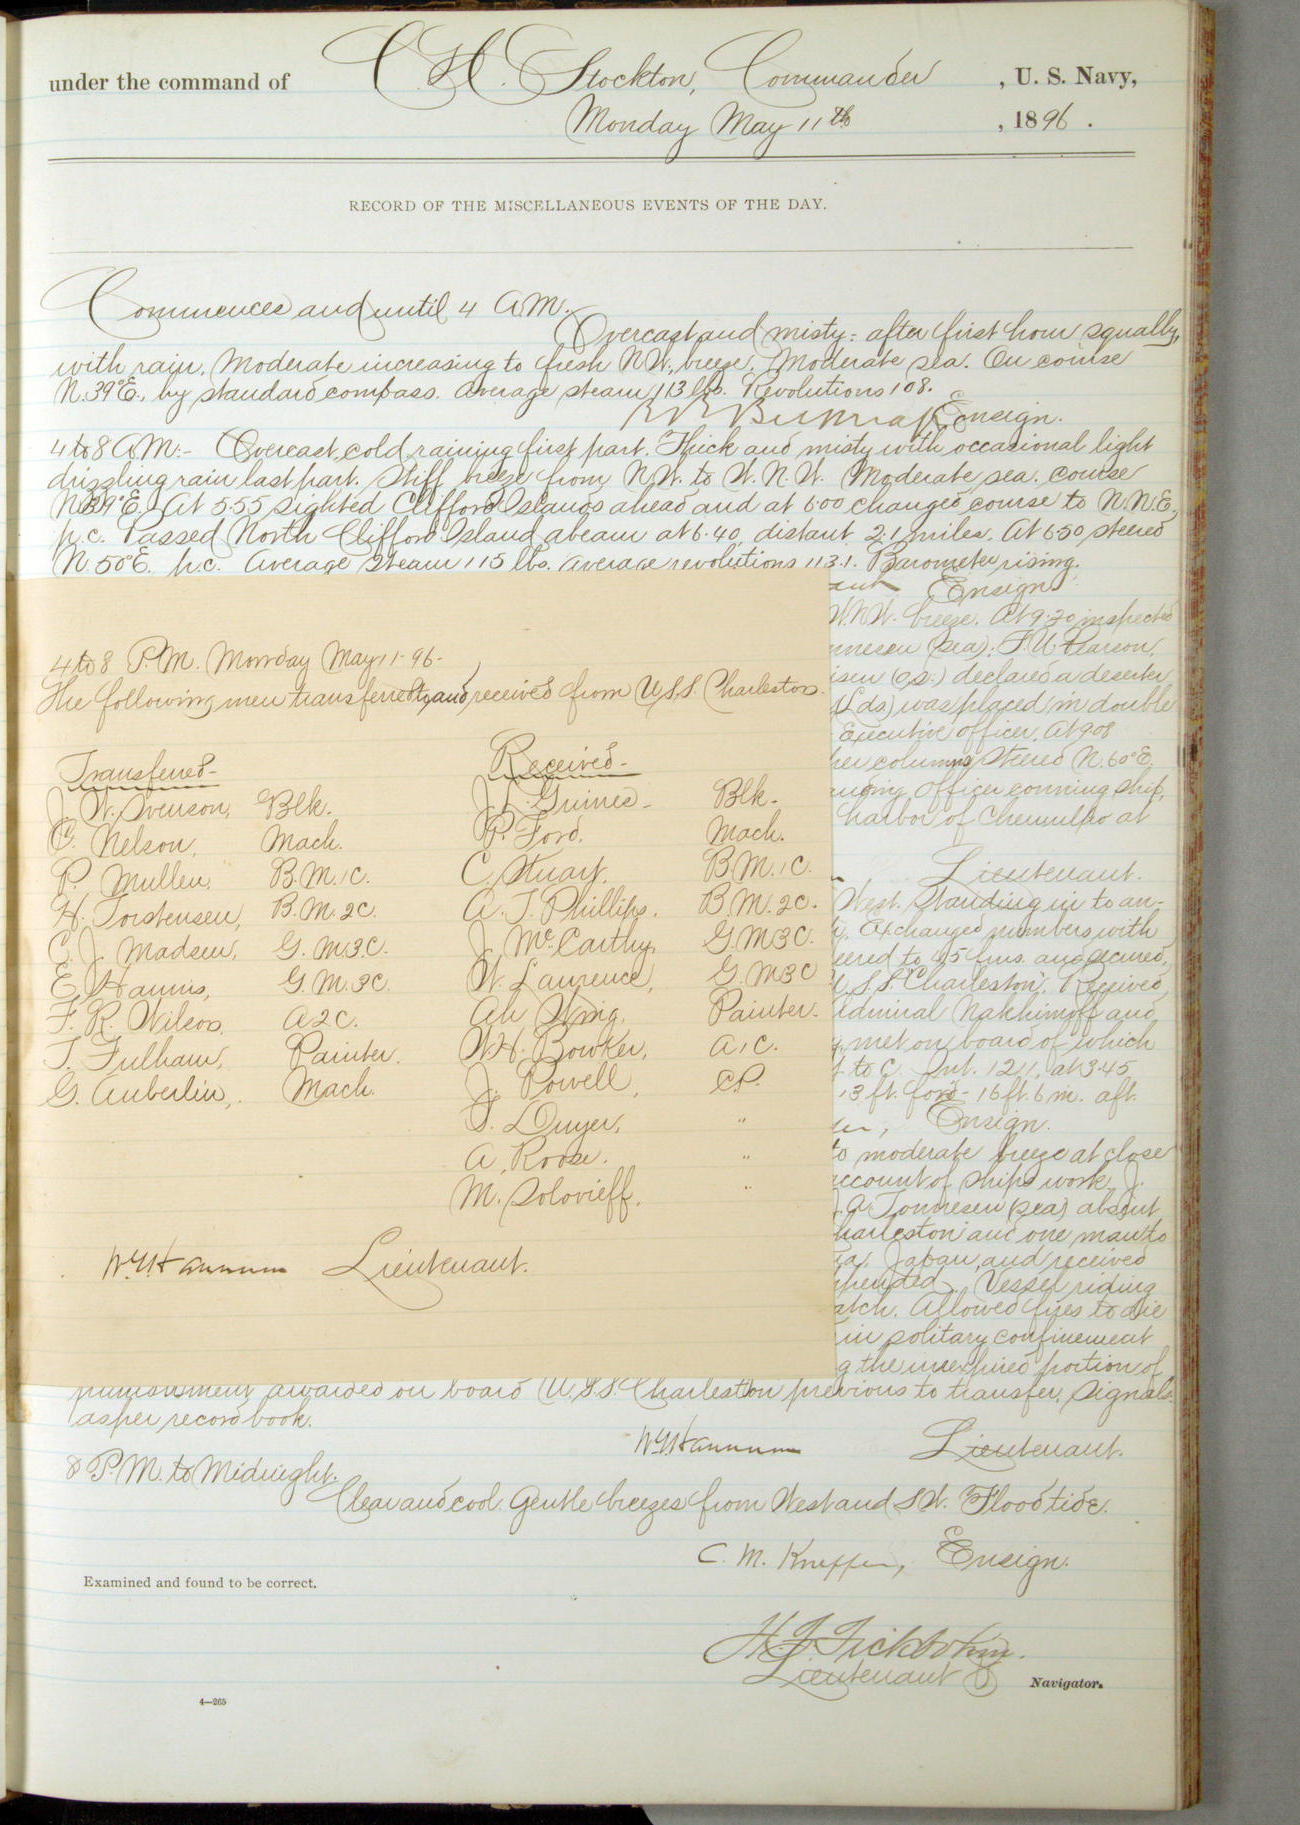 under the command of C. H. Stockton, Commander, U. S. Navy,
Monday May 11th, 1896.
RECORD OF THE MISCELLANEOUS EVENTS OF THE DAY.
Commences and until 4 A.M.
Overcast and misty: after first hour squally,
with rain. Moderate increasing to fresh N.W. breeze. Moderate sea. On course
N.39°E., by standard compass. Average steam 113 lbs. Revolutions 108.
Ensign.
4 to 8 A.M:- Overcast, cold, raining first part. Thick and misty with occasional light
drizzling rain last part. Stiff breeze from N.W. to W.N.W. Moderate sea. Course
N39°E. At 5.55 sighted Clifford Islands ahead and at 6.00 changed course to N.N.E.
p.c. Passed North Clifford Island abeam at 6.40, distant 2.1 miles. At 6.50 steered
N.50°E. p.c. Average Steam 115 lbs. Average revolutions 113.1. Barometer rising.
Ensign
W.N.W. breeze. At 9.20 inspected
(sea): F. W. Pearson,
declared a deserter
(Lds) was placed in double
Executive officer. At 9.08
column, steered N.60°E.
officer conning ship,
harbor of Chemulpo at
Lieutenant.
West. Standing in to an-
Exchanged numbers with
to 45 fms. and secured,
U.S.S. "Charleston". Received
Admiral Nakhimoff and
met on board of which
to C. Int. 12.1, at 3.45
13 ft. for'd - 16 ft. 6 in. aft.
Ensign.
to moderate breeze at close
account of ships work. J.
(sea) absent
Charleston and one man to
Japan, and received
Vessel riding
Allowed fires to die
in solitary confinement
the unexpired portion of
4 to 8 P.M. Monday May 11-96-
The following men transferred to, and received from U.S.S. Charleston.
Transferred- Received-
J. W. Svenson, Blk. J. L. Grimes- Blk-
C. Nelson, Mach. P. Ford. Mach.
P. Mullen. B.M.1C. C. Stuart. B.M.1C.
H. Torstensen, B.M.2C. A. T. Phillips. B.M.2C.
C. J. Madsen, G.M.3C. J. McCarthy, G.M3C.
E. Hanns, G.M.3C. W. Laurence, G.M3C
F. R. Wilson, A2C. Ah Wing. Painter.
T. Fulham, Painter. W. H. Bowker, A1C.
G. Auberlin, Mach. J. Powell, C.P.
Dwyer, "
A. Roose. "
M. Solovieff. "
Lieutenant.
punishment awarded on board U.S.S. Charleston previous to transfer. Signals
as per record book.
Lieutenant.
8 P.M. to Midnight.
Clear and cool. Gentle breezes from West and S.W. Flood tide.
Ensign.
Examined and found to be correct.
Lieutenant
Navigator.
4—265